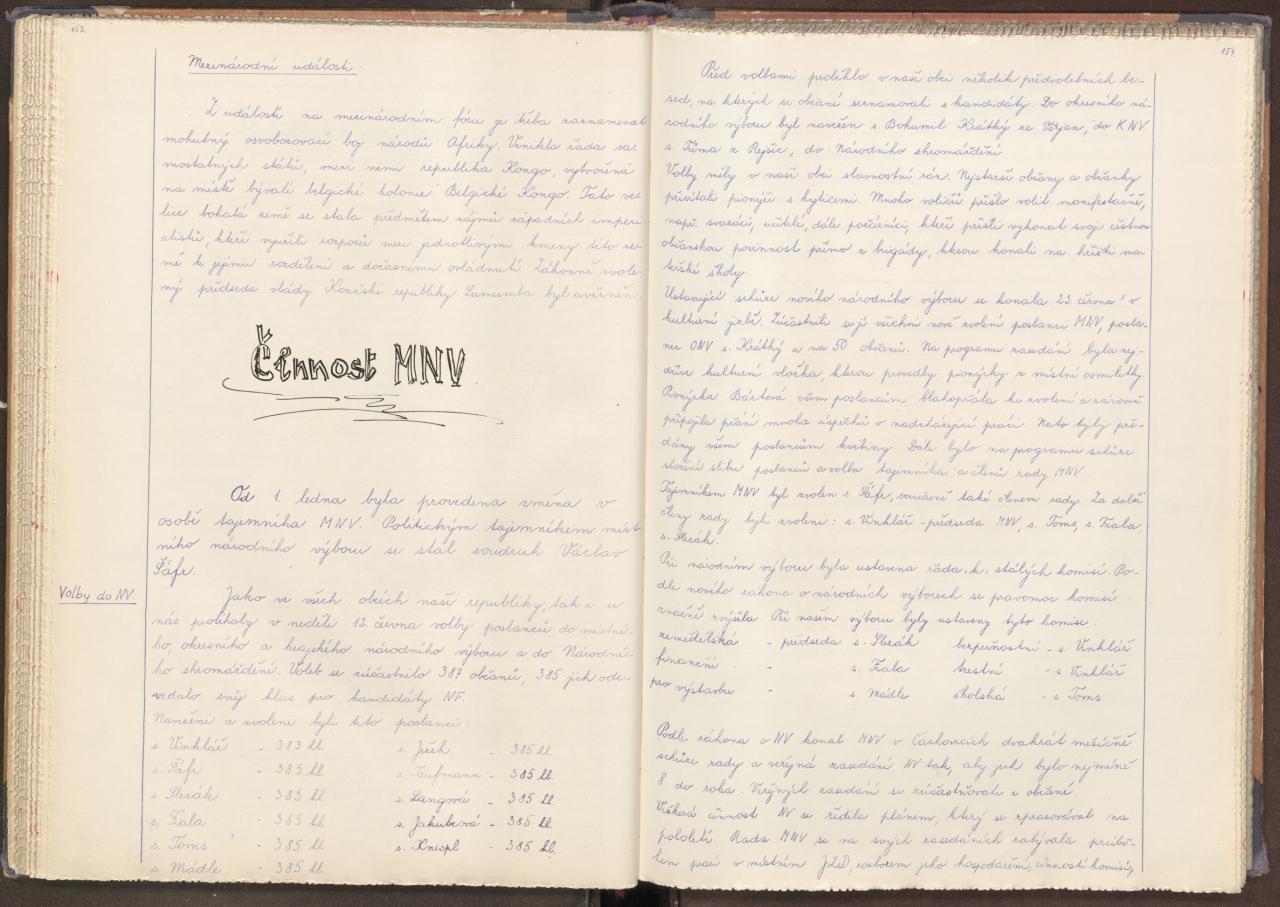 153.
Mezinárodní události:
Z událostí na mezinárodním fóru je třeba zaznamenat
mohutný osvobozovací boj národů Afriky. Vznikla řada sa-
mostatných států, mezi nimi republika Kongo, vytvořená
na místě bývalé belgické kolonie Belgické Kongo. Tato ve-
lice bohatá země se stala předmětem zájmů západních imperi-
alistů, kteří využili rozporů mezi jednotlivými kmeny této ze-
mě k jejímu rozdělení a dočasnému ovládnutí. Zákonně zvole-
ný předseda vlády Konžské republiky Lumumba byl uvězněn.
Činnost MNV
Od 1. ledna byla provedena změna v
osobě tajemníka MNV. Politickým tajemníkem míst-
ního národního výboru se stal soudruh Václav
Šáfr.
Volby do NV:
Jako ve všech obcích naší republiky, tak i u
nás probíhaly v neděli 12. června volby poslanců do místné-
ho, okresního a krajského národního výboru a do Národní-
ho shromáždění. Voleb se zúčastnilo 387 občanů, 385 jich ode-
vzdalo svůj hlas pro kandidáty NF.
Navrženi a zvoleni byli tito poslanci:
s. Vinklář - 383 hl. s. Jech - 385 hl.
s. Šáfr - 385 hl. s. Taufmann - 385 hl.
s. Slezák - 385 hl. s. Langová - 385 hl.
s. Fiala - 385 hl. s. Jakubcová - 385 hl.
s. Toms - 385 hl. s. Knespl - 385 hl.
s. Mádle - 385 hl.
154.
Před volbami proběhlo v naší obci několik předvolebních be-
sed, na kterých se občané seznamovali s kandidáty. Do okresního ná-
rodního výboru byl navržen s. Bohumil Krátký ze Vrian, do KNV
s. Tůma z Rejšic, do Národního shromáždění
Volby měly v naší obci slavnostní ráz. Nejstarší občany a občanky
přivítali pionýři s kyticemi. Mnoho voličů přišlo volit manifestačně,
např. svazáci, učitelé, dále požárníci, kteří přišli vykonat svoji čestnou
občanskou povinnost přímo z brigády, kterou konali na hřišti ma-
teřské školy.
Ustavující schůze nového národního výboru se konala 23. června v
kulturní jizbě. Zúčastnili se jí všichni nově zvolení poslanci MNV, posla-
nec ONV s. Krátký a na 50 občanů. Na programu zasedání byla nej-
dříve kulturní vložka, kterou provedly pionýrky z místní osmiletky.
Pionýrka Bártová všem poslancům blahopřála ke zvolení a zároveň
připojila přání mnoha úspěchů v nadcházející práci. Nato byly pře-
dány všem poslancům květiny. Dále bylo na programu schůze
složení slibu poslanců a volba tajemníka a členů rady MNV.
Tajemníkem MNV byl zvolen s. Šáfr, současně také členem rady. Za další
členy rady byli zvoleni: s. Vinklář - předseda MNV, s. Toms, s. Fiala,
s. Slezák.
Při národním výboru byla ustavena řada stálých komisí. Po-
dle nového zákona o národních výborech se pravomoc komisí
značně zvýšila. Při našem výboru byly ustaveny tyto komise:
zemědělská - předseda s. Slezák bezpečnostní - s. Vinklář
finanční - s. Fiala trestní - s. Vinklář
pro výstavbu - s. Mádle školská - s. Toms
Podle zákona o NV konal MNV v Čachovicích dvakrát měsíčně
schůze rady a veřejná zasedání NV tak, aby jich bylo nejméně
8 do roka. Veřejných zasedání se zúčastňovali i občané.
Veškerá činnost NV se řídila plánem, který se zpracovával na
pololetí. Rada MNV se na svých zasedáních zabývala průbě-
hem prací v místním JZD, rozborem jeho hospodaření, činností komisí,